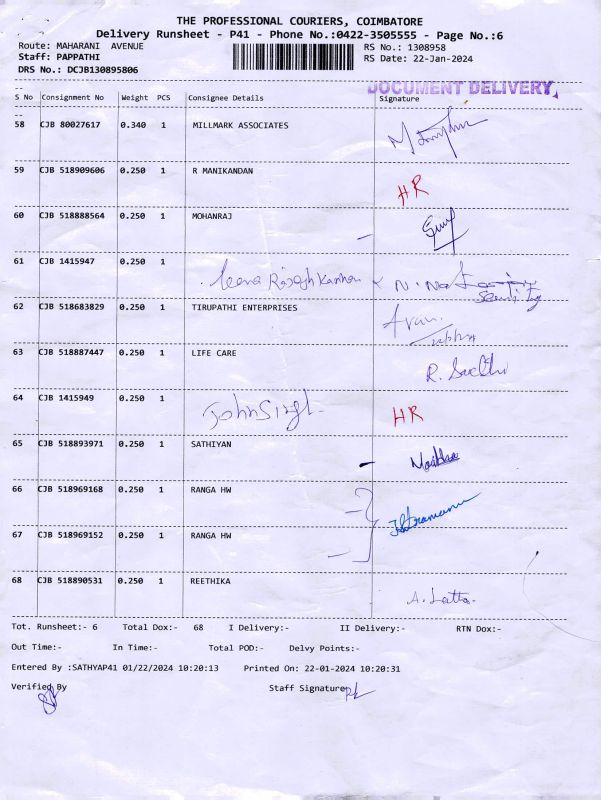 THE PROFESSIONAL COURIERS, COIMBATORE
Delivery Runsheet - P41 - Phone No.:0422-3505555 - Page No.:6
Route: MAHARANI AVENUE RS No.: 1308958
Staff: PAPPATHI RS Date: 22-Jan-2024
DRS No.: DCJB130895806
DOCUMENT DELIVERY
S No Consignment No Weight PCS Consignee Details Signature
58 CJB 80027617 0.340 1 MILLMARK ASSOCIATES
59 CJB 518909606 0.250 1 R MANIKANDAN HR
60 CJB 518888564 0.250 1 MOHANRAJ
61 CJB 1415947 0.250 1
62 CJB 518683829 0.250 1 TIRUPATHI ENTERPRISES
63 CJB 518887447 0.250 1 LIFE CARE
64 CJB 1415949 0.250 1 John Singh HR
65 CJB 518893971 0.250 1 SATHIYAN
66 CJB 518969168 0.250 1 RANGA HW
67 CJB 518969152 0.250 1 RANGA HW
68 CJB 518890531 0.250 1 REETHIKA A. Latta
Tot. Runsheet:- 6 Total Dox:- 68 I Delivery:- II Delivery:- RTN Dox:-
Out Time:- In Time:- Total POD:- Delvy Points:-
Entered By :SATHYAP41 01/22/2024 10:20:13 Printed On: 22-01-2024 10:20:31
Verified By Staff Signature